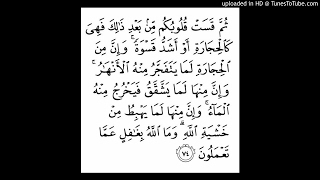 uploaded in HD @ TunesToTube.com
ثُمَّ قَسَتْ قُلُوبُكُم مِّنۢ بَعْدِ ذَٰلِكَ فَهِىَ
كَٱلْحِجَارَةِ أَوْ أَشَدُّ قَسْوَةً ۚ وَإِنَّ مِنَ
ٱلْحِجَارَةِ لَمَا يَتَفَجَّرُ مِنْهُ ٱلْأَنْهَـٰرُ ۚ
وَإِنَّ مِنْهَا لَمَا يَشَّقَّقُ فَيَخْرُجُ مِنْهُ
ٱلْمَآءُ ۚ وَإِنَّ مِنْهَا لَمَا يَهْبِطُ مِنْ
خَشْيَةِ ٱللَّهِ ۗ وَمَا ٱللَّهُ بِغَـٰفِلٍ عَمَّا
تَعْمَلُونَ ٧٤